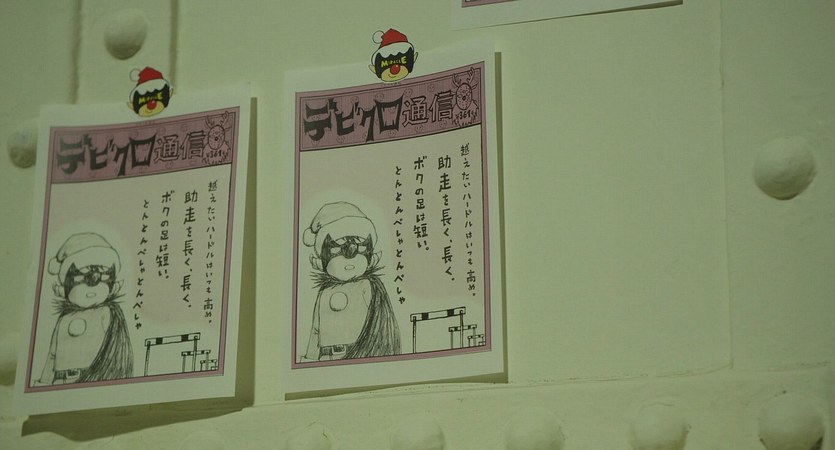 MIRACLE
デビクロ通信
越えたいハードルはいつも高め。
助走を長く、長く。
ボクの足は短い。
とんとんべしゃとんべしゃ
MIRACLE
デビクロ通信
越えたいハードルはいつも高め。
助走を長く、長く。
ボクの足は短い。
とんとんべしゃとんべしゃ